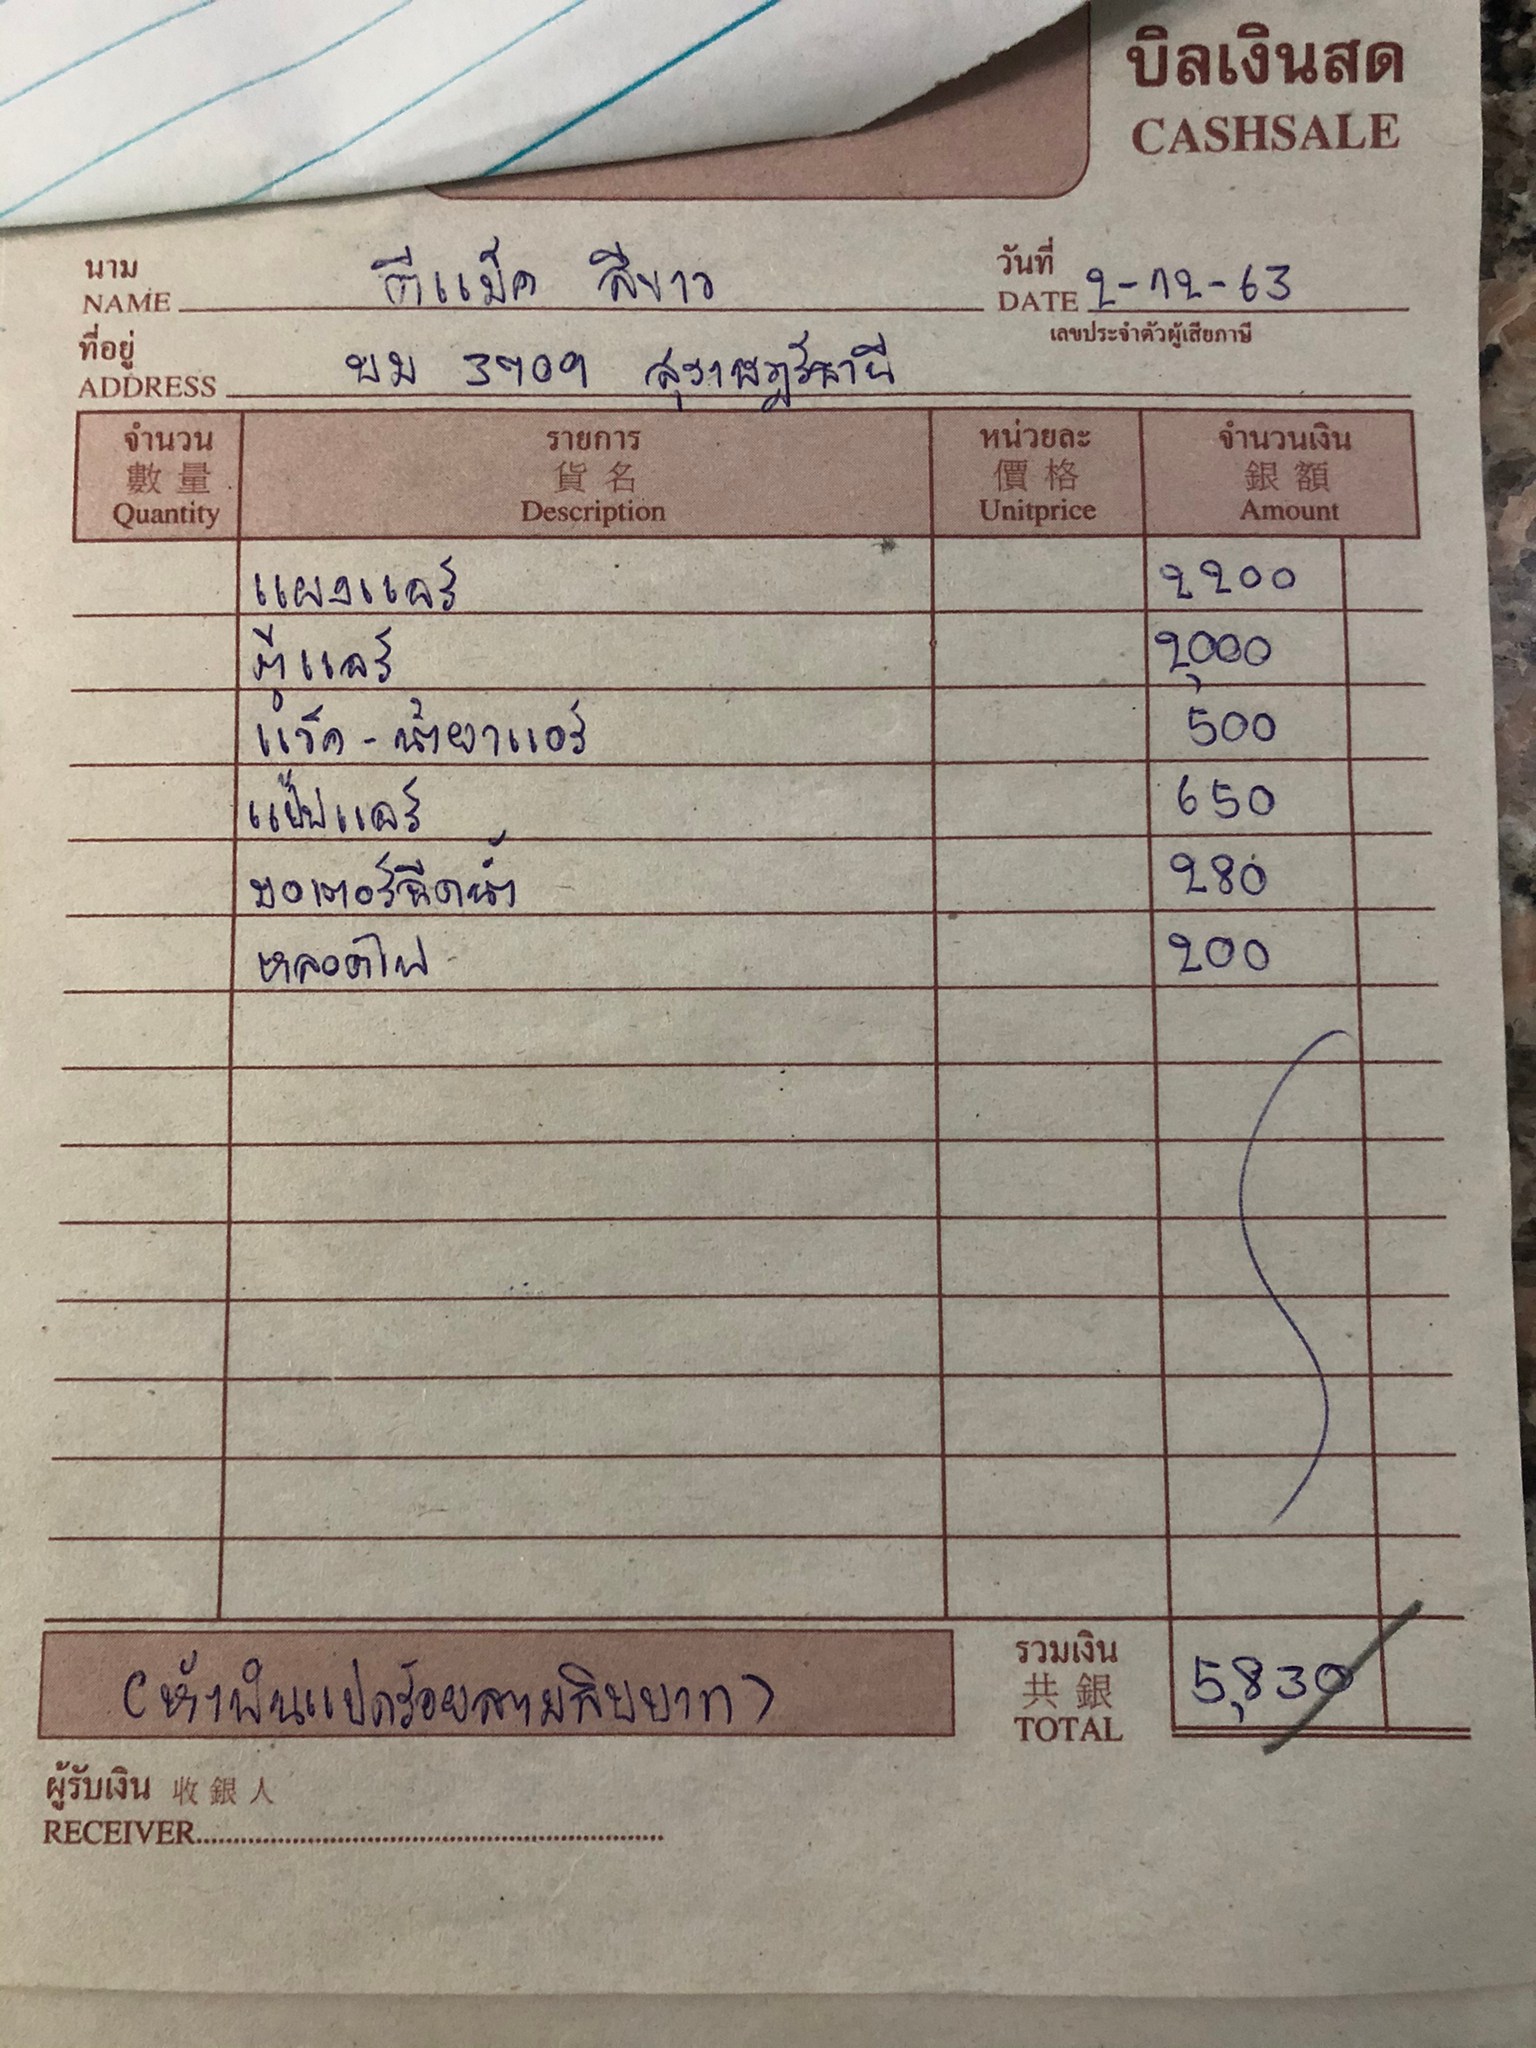 บิลเงินสด
CASHSALE
นาม
NAME ดีแม็ค สีขาว
วันที่
DATE 2-12-63
เลขประจำตัวผู้เสียภาษี
ที่อยู่
ADDRESS พม 3909 สุราษฎร์ธานี
จำนวน รายการ หน่วยละ จำนวนเงิน
數量 貨名 價格 銀額
Quantity Description Unitprice Amount
แผงแอร์ 2200
ตู้แอร์ 2,000
แว๊ค - น้ำยาแอร์ 500
แป๊ปแอร์ 650
มอเตอร์ฉีดน้ำ 280
หลอดไฟ 200
รวมเงิน
共銀
TOTAL 5,830
(ห้าพันแปดร้อยสามสิบบาท)
ผู้รับเงิน 收銀人
RECEIVER